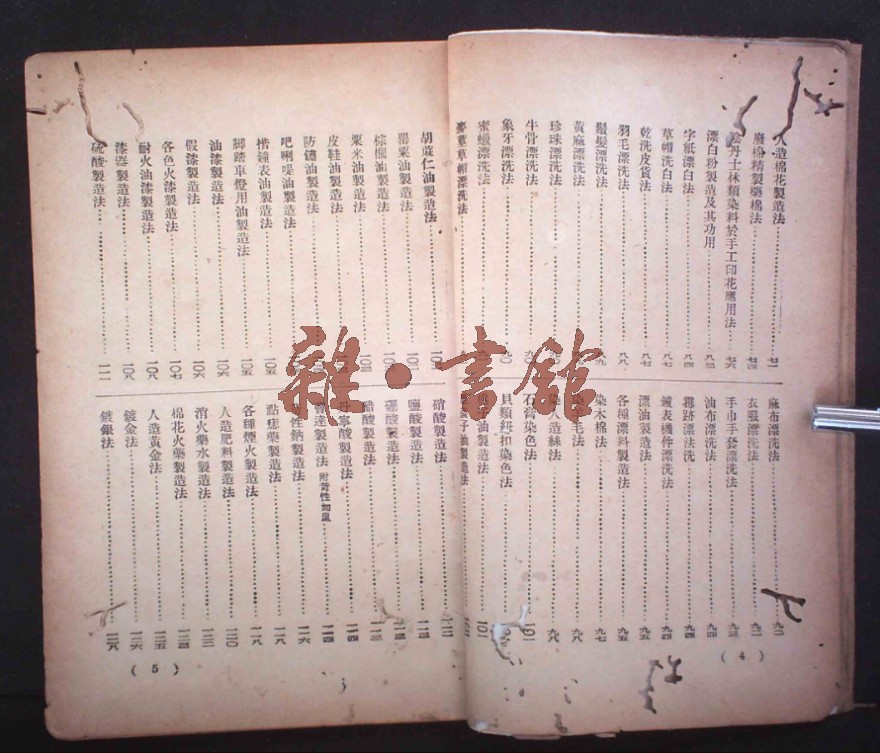 人造棉花製造法 七一
廢棉精製藥棉法 七四
陰丹士林類染料於手工印花應用法 七六
漂白粉製造及其功用 八三
字紙漂白法 八四
草帽洗白法 八七
乾洗皮貨法 八七
羽毛漂洗法 八八
鬚髮漂洗法
黃麻漂洗法
珍珠漂洗法
牛骨漂洗法
象牙漂洗法
蜜蠟漂洗法
麥藁草帽漂洗法
麻布漂洗法 九二
衣服漂洗法
手巾手套漂洗法 九三
油布漂洗法 九四
霉跡漂法洗 九四
鐘表機件漂洗法 九五
漂油製造法 九五
各種漂料製造法 九五
染木棉法 九七
毛法 九八
染人造絲法 九八
石膏染色法 一〇一
貝類鈕扣染色法
油製造法 一〇一
(4)
胡蔴仁油製造法
罌粟油製造法
棕櫚油製造法
粟米油製造法
皮鞋油製造法
防銹油製造法
吧唎嗹油製造法
揩鐘表油製造法 一〇五
脚踏車燈用油製造法 一〇五
油漆製造法 一〇六
假漆製造法 一〇六
各色火漆製造法 一〇七
耐火油漆製造法 一〇八
漆器製造法 一〇八
硫酸製造法 一一一
硝酸製造法 一一二
鹽酸製造法 一一三
硼酸製造法 一一三
醋酸製造法 一一三
丹寧酸製造法 一一四
曹達製造法 附苛性加里 一一四
性鈉製造法 一一六
點痣藥製造法 一一八
各種煙火製造法 一一八
人造肥料製造法 一二〇
消火藥水製造法 一二三
棉花火藥製造法 一二三
人造黃金法 一二五
鍍金法 一二六
鍍銀法 一二八
(5)
雜·書館